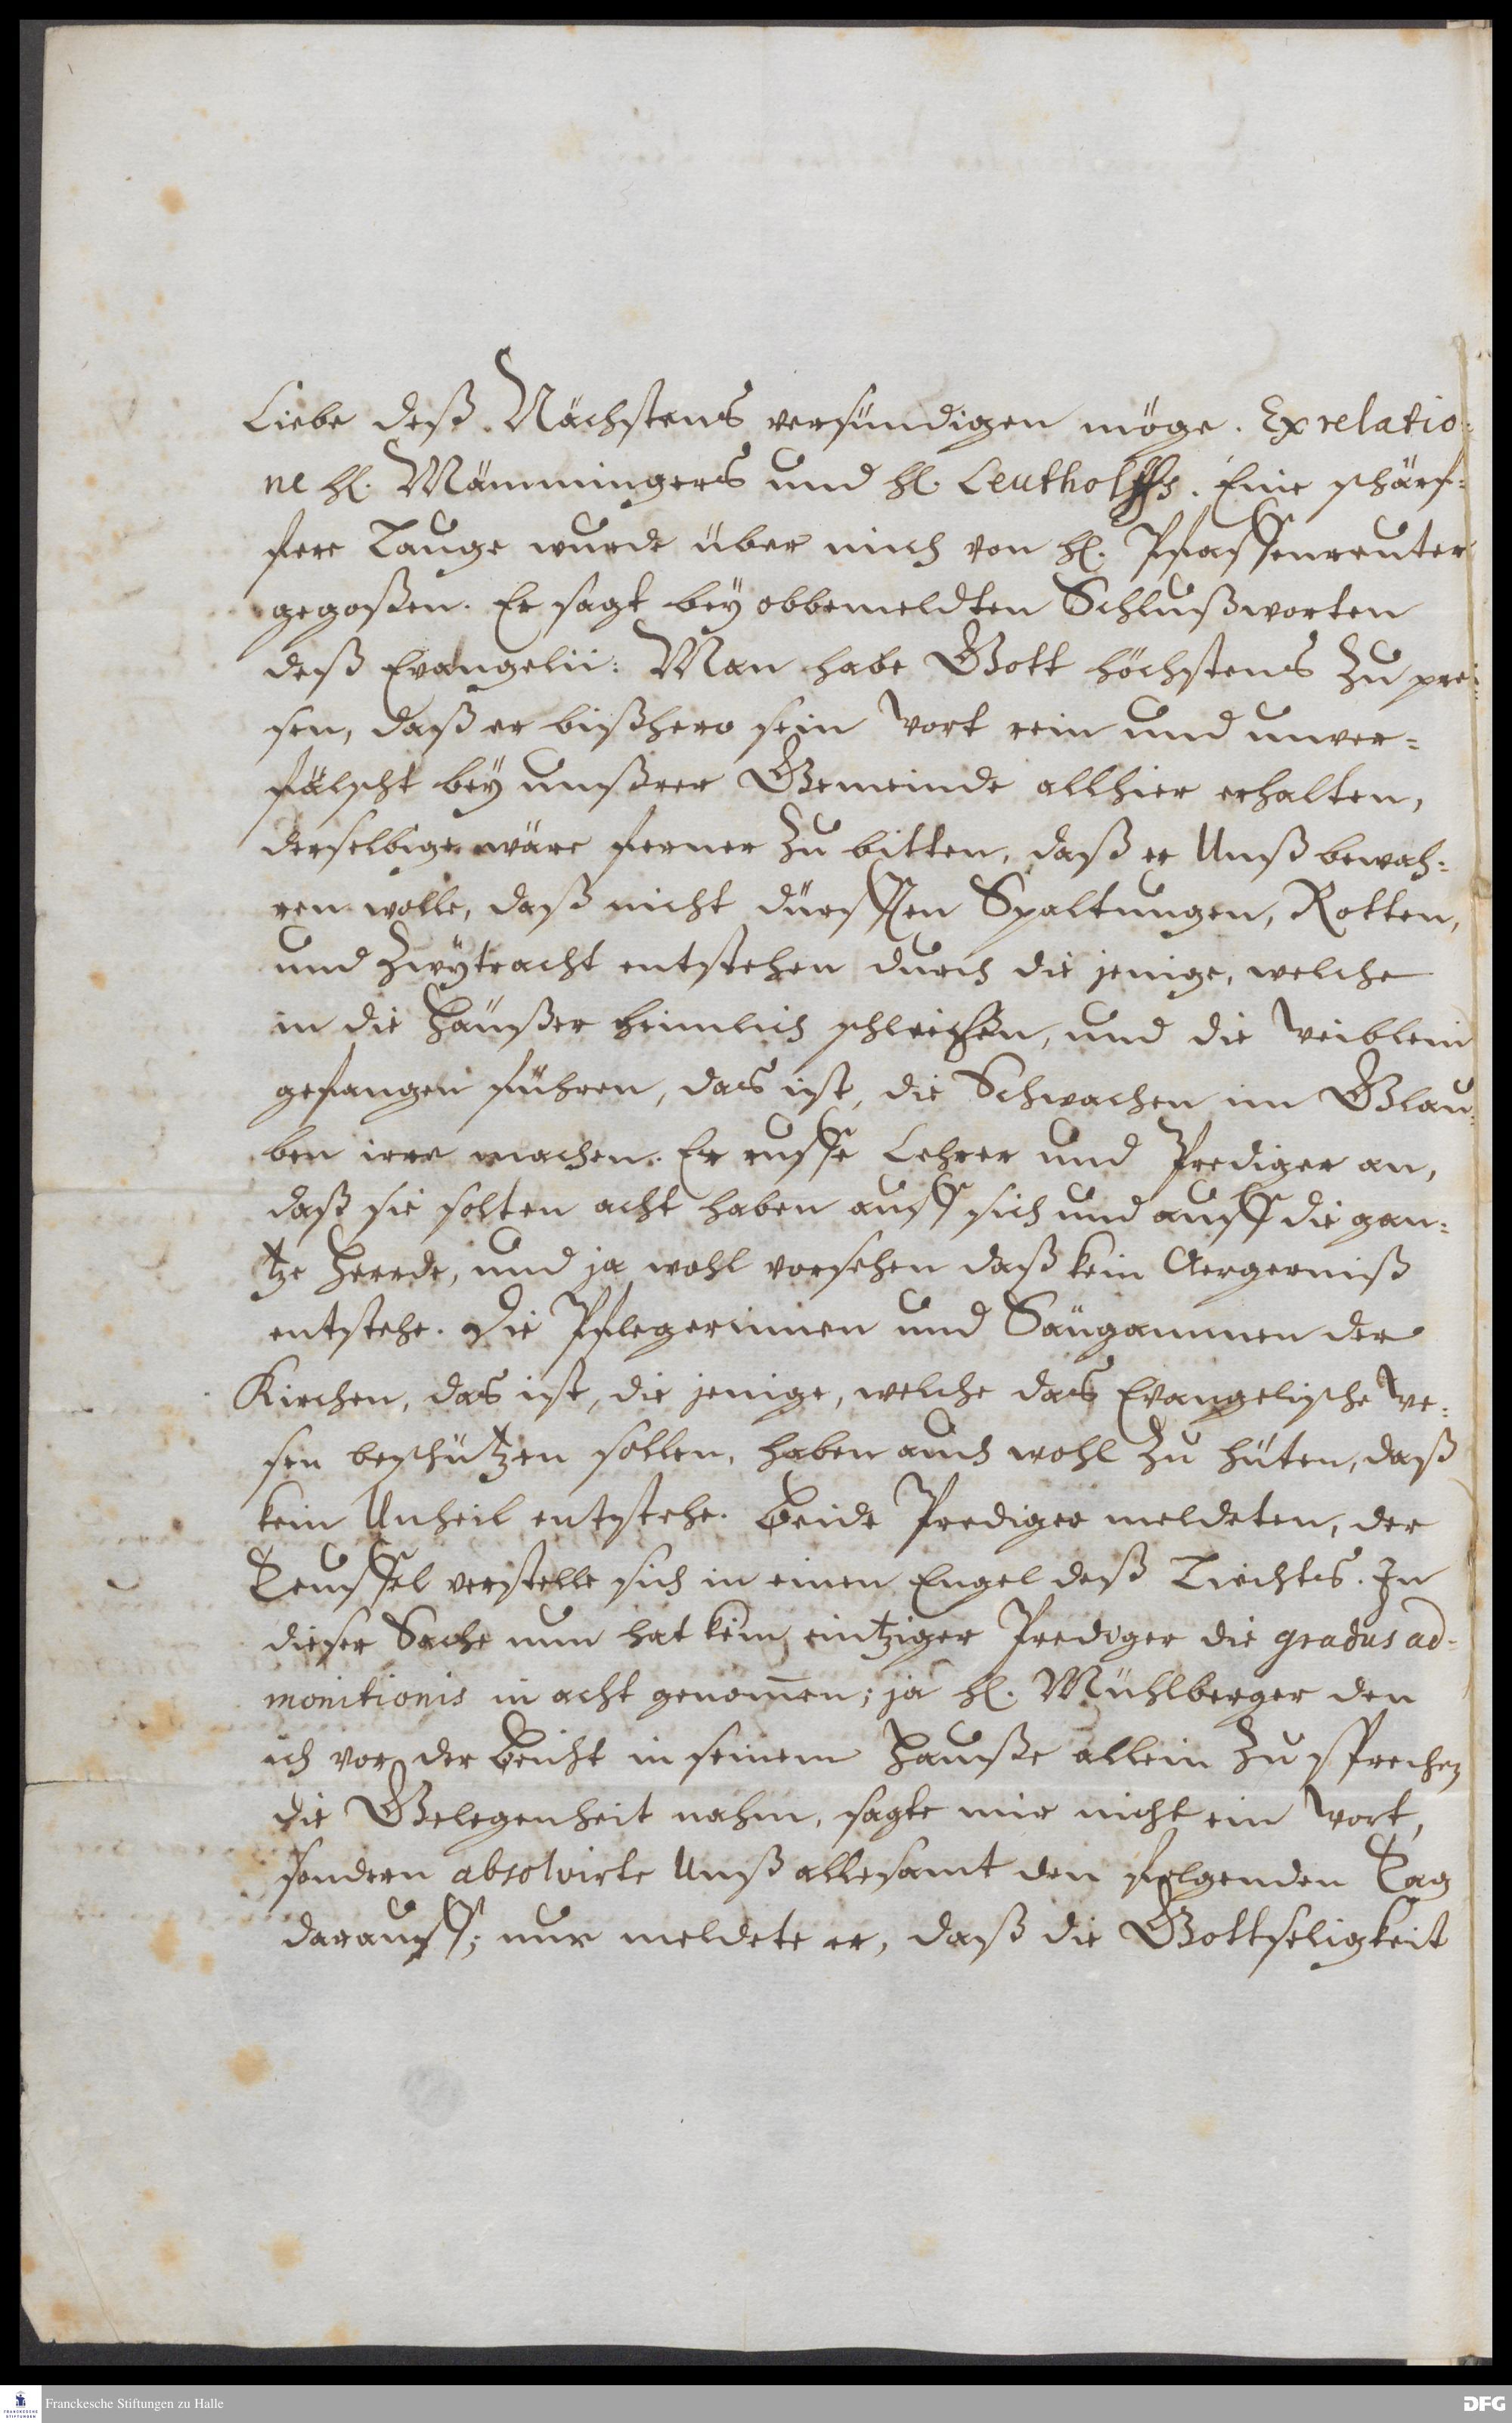 Liebe deß Nächstens versündigen möge. Ex relatio=
ne H. Mämmingers und H. Leutholffs. Eine schärf=
fere Lauge wurde über mich von H. Pfaffenreuter
gegoßen. Er sagt bey obbemeldten Schlußworten
deß Evangelii: Man habe Gott höchstens zu prei=
sen, daß er bißhero sein Wort rein und unver=
fälscht bey unßrer Gemeinde allhier erhalten,
derselbige wäre ferner zu bitten, daß er Unß bewah=
ren wolle, daß nicht dürfften Spaltungen, Rotten,
und Zwytracht entstehen durch die jenige, welche
in die Häußer heimlich schleichen, und die Weiblein
gefangen führen, das ist, die Schwachen im Glau=
ben irre machen. Er ruffe Lehrer und Prediger an,
daß sie solten acht haben auff sich und auff die gan=
tze Heerde, und ja wohl vorsehen daß kein Aergerniß
entstehe. Die Pflegerinnen und Säugammen der
Kirchen, das ist, die jenige, welche das Evangelische We=
sen beschützen sollen, haben auch wohl zu hüten, daß
kein Unheil entstehe. Beide Prediger meldeten, der
Teuffel verstelle sich in einen Engel deß Liechtes. In
dieser Sache nun hat kein eintziger Prediger die gradus ad=
monitionis in acht genom̃en; ja H. Mühlberger den
ich vor der Beicht in seinem Hauße allein zu sprechen
die Gelegenheit nahm, sagte mir nicht ein Wort,
sondern absolvirte Unß allesamt den folgenden Tag
darauff; nur meldete er, daß die Gottseligkeit
Franckesche Stiftungen zu Halle
FRANCKESCHE STIFTUNGEN
DFG